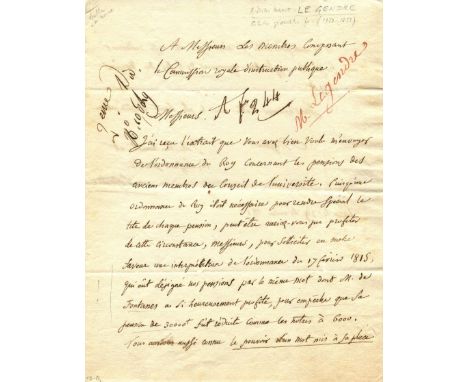 LE GENDRE
A Messieurs Les membres composant
la Commission royale d'instruction publique
M. Legendre
Messieurs,
J'ai reçu l'extrait que vous avez bien voulu m'envoyer
de l'ordonnance du Roy concernant les pensions des
anciens membres du Conseil de l'université. Puisqu'une
ordonnance du Roy étoit nécessaire pour rendre spécial le
titre de chaque pension, peut être auriez-vous pu profiter
de cette circonstance, Messieurs, pour solliciter en notre
faveur une interprétation de l'ordonnance du 17 février 1815,
qui eût désigné nos pensions par le même mot dont M. de
Fontanes a si heureusement profité, pour empêcher que sa
pension de 30000f fut réduite comme les nôtres à 6000.
Vous aussi connu le pouvoir d'un mot mis à sa place